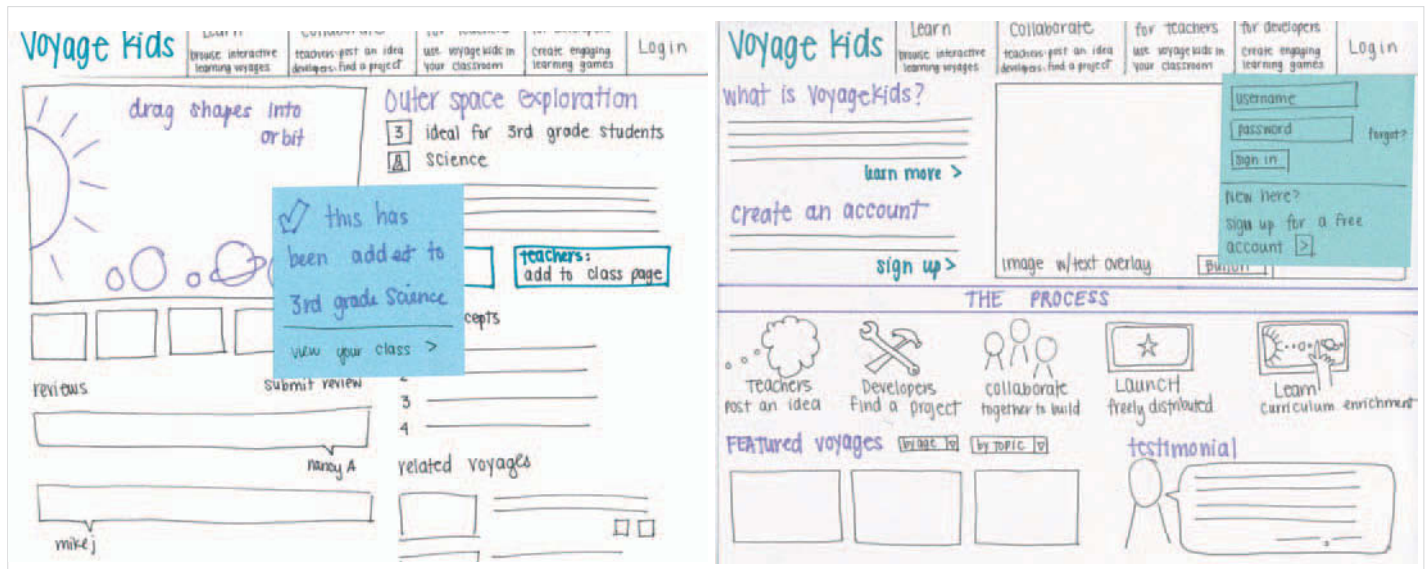 Voyage Kids
Learn
browse interactive
learning voyages
Collaborate
teachers-post an idea
developers-find a project
for teachers
use voyage kids in
your classroom
for developers
create engaging
learning games
Login
drag shapes into
orbit
outer space exploration
3 ideal for 3rd grade students
science
this has
been added to
3rd grade science
view your class >
teachers:
add to class page
cepts
2
3
4
reviews
submit review
nancy A
mike j
related voyages
Voyage Kids
Learn
browse interactive
learning voyages
Collaborate
teachers-post an idea
developers-find a project
for teachers
use voyage kids in
your classroom
for developers
create engaging
learning games
Login
username
password
forgot?
sign in
New here?
sign up for a free
account >
what is VoyageKids?
learn more >
create an account
sign up >
image w/text overlay
Button
THE PROCESS
Teachers
post an idea
Developers
find a project
collaborate
together to build
LAUNCH
freely distributed
Learn
curriculum enrichment
FEATured voyages
by age
by TOPIC
testimonial